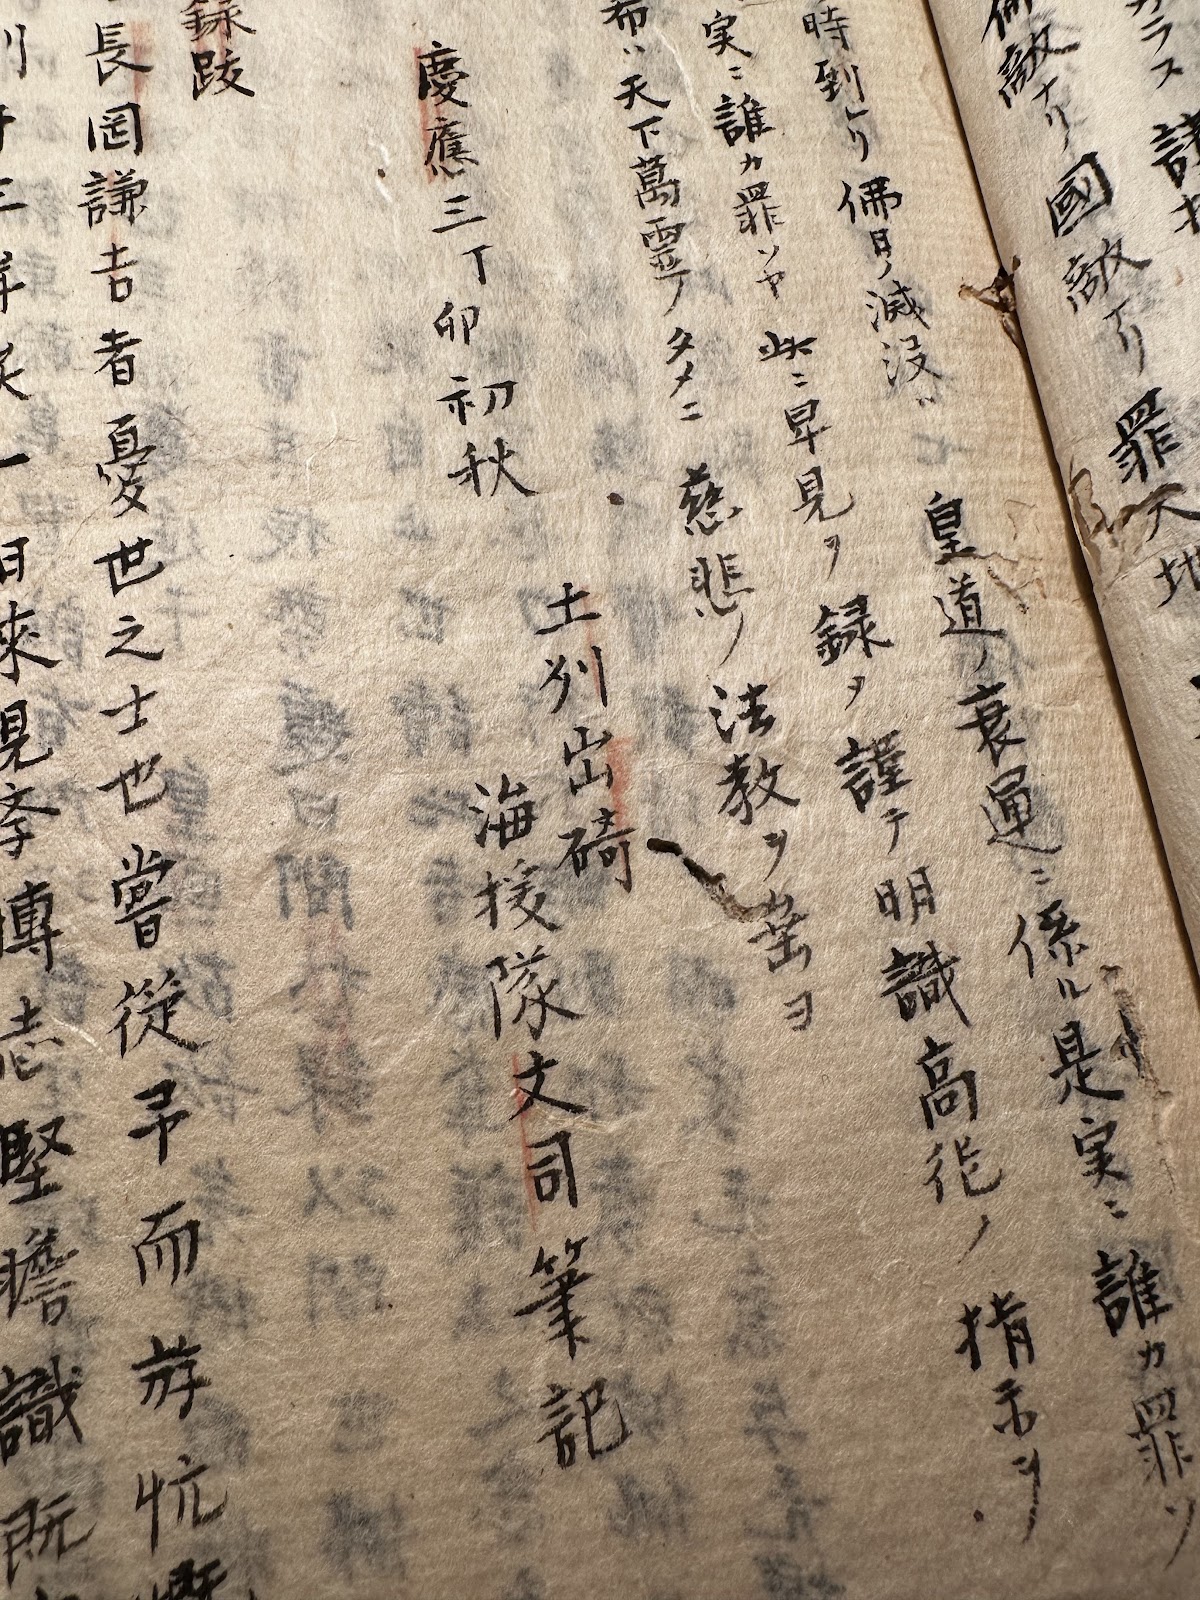 カラス諸
佛敵ナリ國敵ナリ罪天地
時到レリ佛日ノ滅没ハ皇道ノ衰運ニ係ル是実ニ誰カ罪ソ
実ニ誰カ罪ソヤ此ニ卑見ヲ録ヲ謹テ明識高作ノ指示ヲ
希ハ天下萬霊ノタメニ慈悲ノ法教ヲ垂ヨ
慶應三丁卯初秋
土刕出碕
海援隊文司筆記
録跋
長岡謙吉者憂世之士也嘗從予而游忼慨
一日來見李博志堅瞻識既